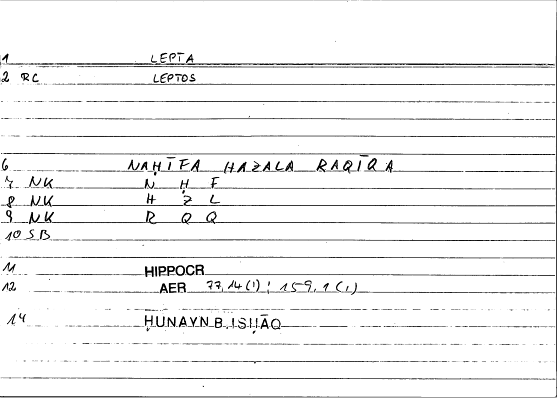 1 LEPTA
2 RC LEPTOS
6 NAḤĪFA HAZALA RAQĪQA
7 NK N Ḥ F
8 NK H Z L
9 NK R Q Q
10 SB
11 HIPPOCR
12 AER 77,14(!) ; 159,1(,)
14 ḤUNAYN B.ISḤĀQ